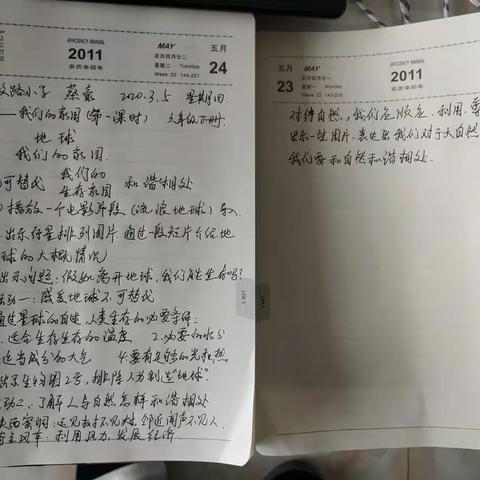 EFFICIENCY MANUAL
2011
农历辛卯年
MAY
农历四月廿二
星期二 Tuesday
Week 22 144-221
五月
24
路小学 蔡 2020.3.5 星期四
——我们的家园(第一课时) 六年级下册
地球
我们的家园
我们的
可替代 生存家园 和谐相处
播放一个电影片段(流浪地球)导入
出示行星排列图片,通过一段短片介绍地
球的大概情况
出示问题:假如离开地球,我们能生存吗?
活动一:感受地球不可替代
通过星球的自述,人类生存的必要条件:
1.适合生存生存的温度 2.必要的水分
适当成分的大气 4.要有足够的光和热
出示生物圈2号,排除人为制造"地球".
活动二、了解人与自然怎样和谐相处
陕西窑洞:远见村子不见村,邻近闻声不见人.
荷兰风车:利用风力发展经济.
五月
23
MAY
农历四月廿一
星期一 Monday
Week 22 143-222
EFFICIENCY MANUAL
2011
农历辛卯年
对待自然,我们应顺应、利用、
出示一些图片,表达出我们对于大自然
我们要和自然和谐相处.